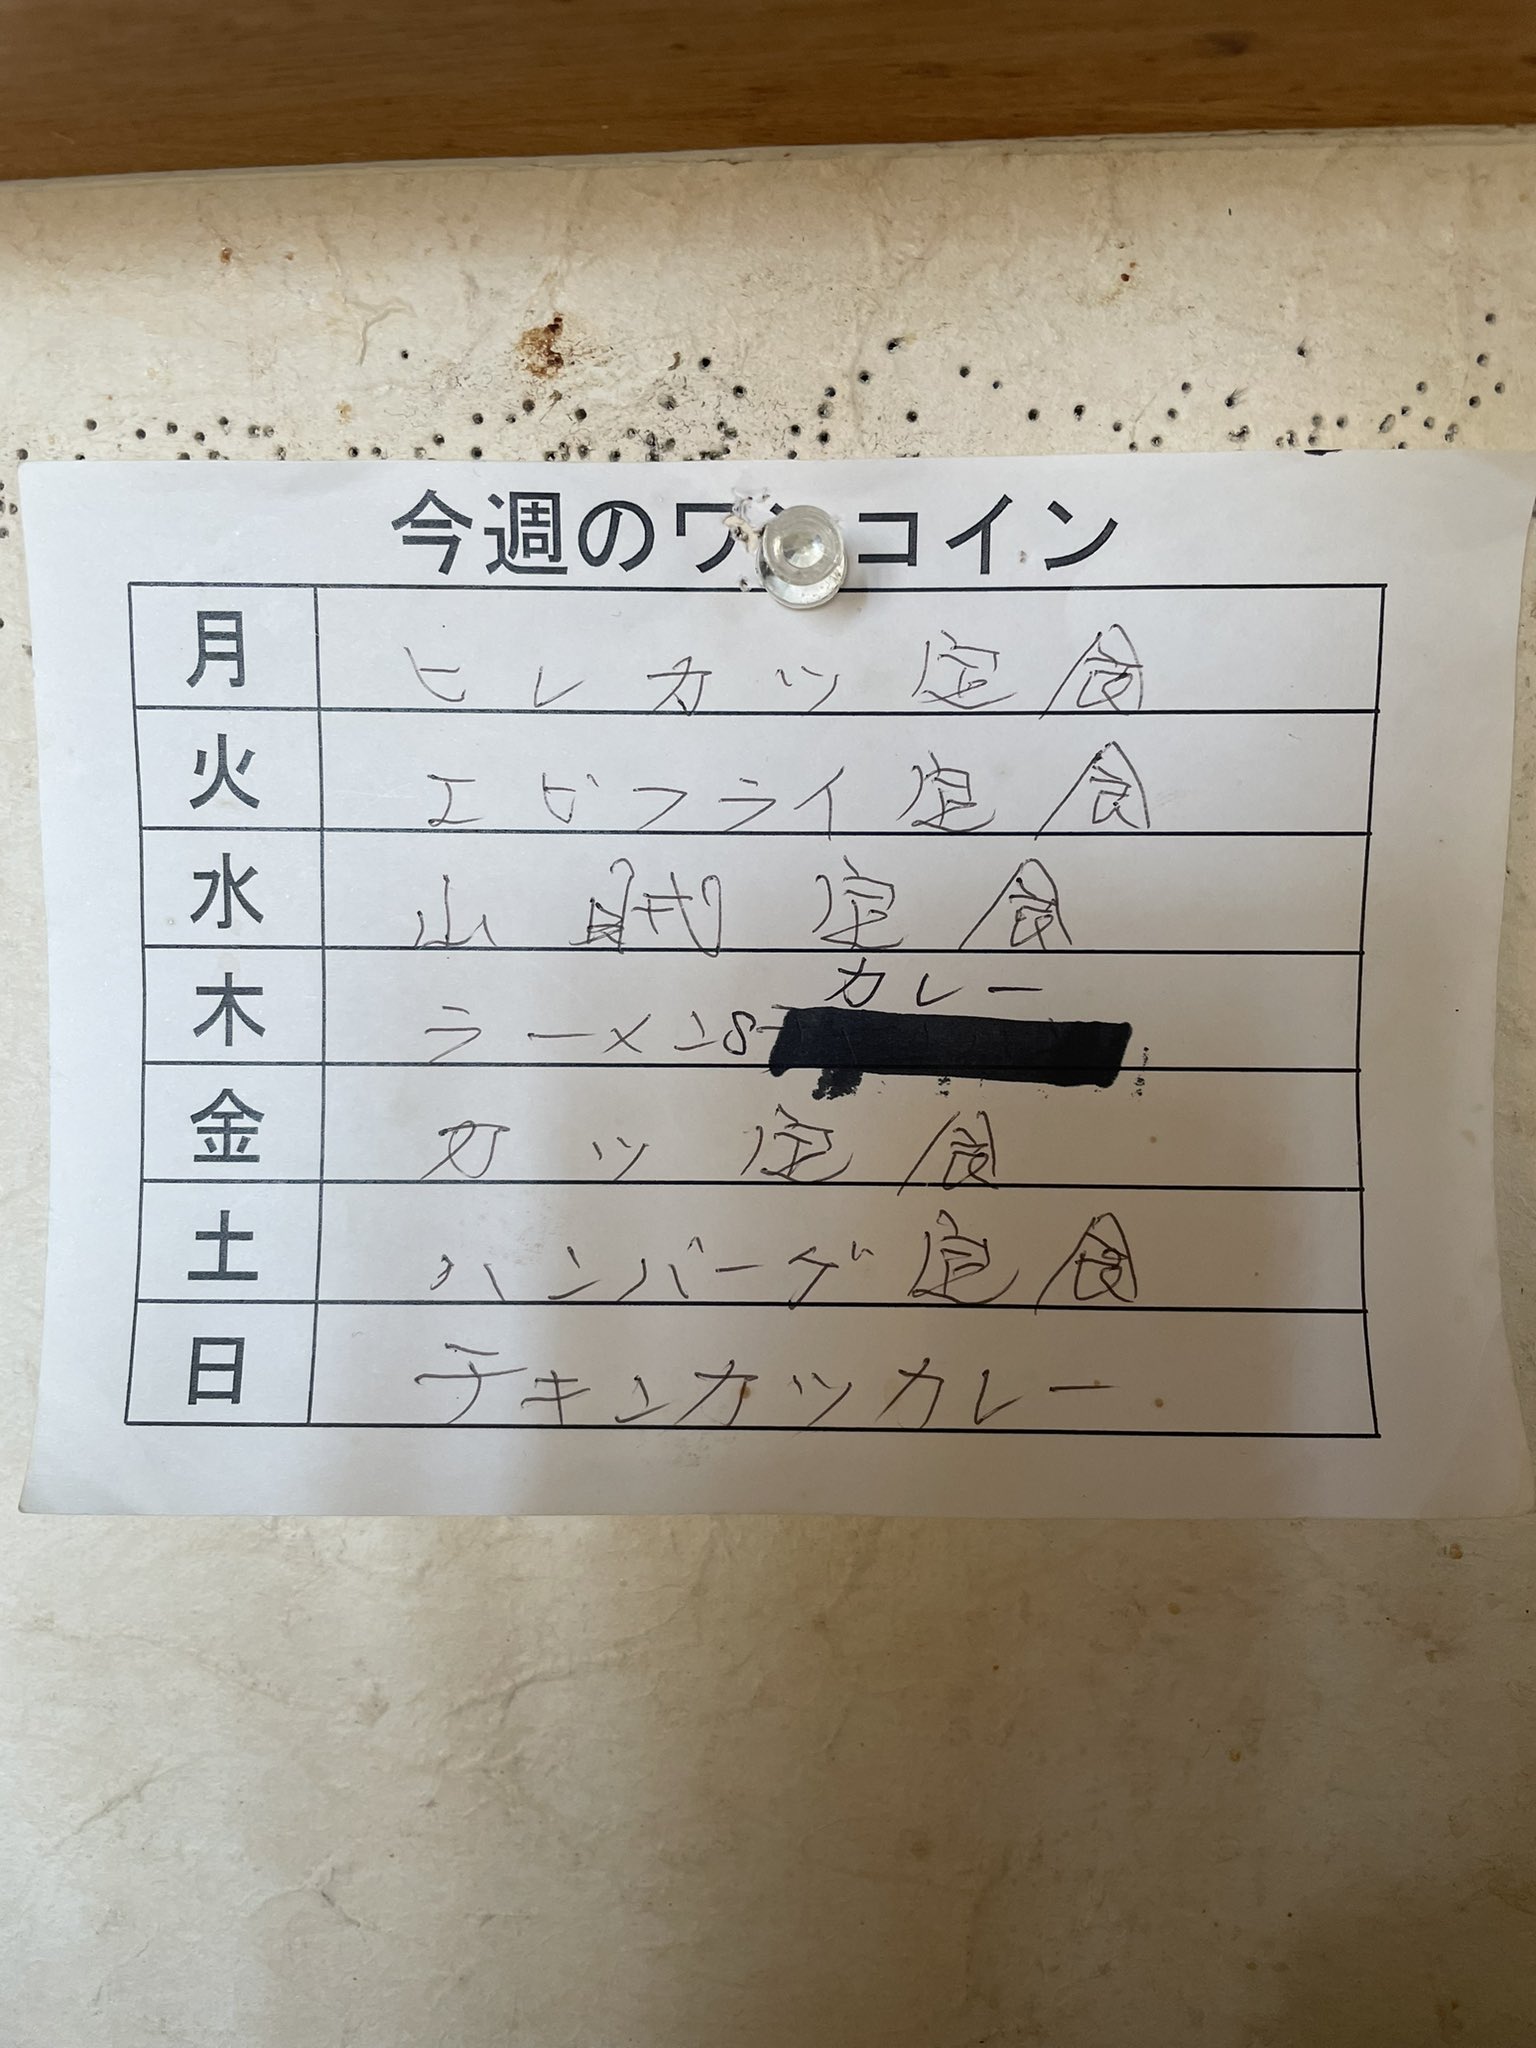 今週のワンコイン
月 ヒレカツ定食
火 エビフライ定食
水 山賊定食
カレー
木 ラーメン&
金 カツ定食
土 ハンバーグ定食
日 チキンカツカレー